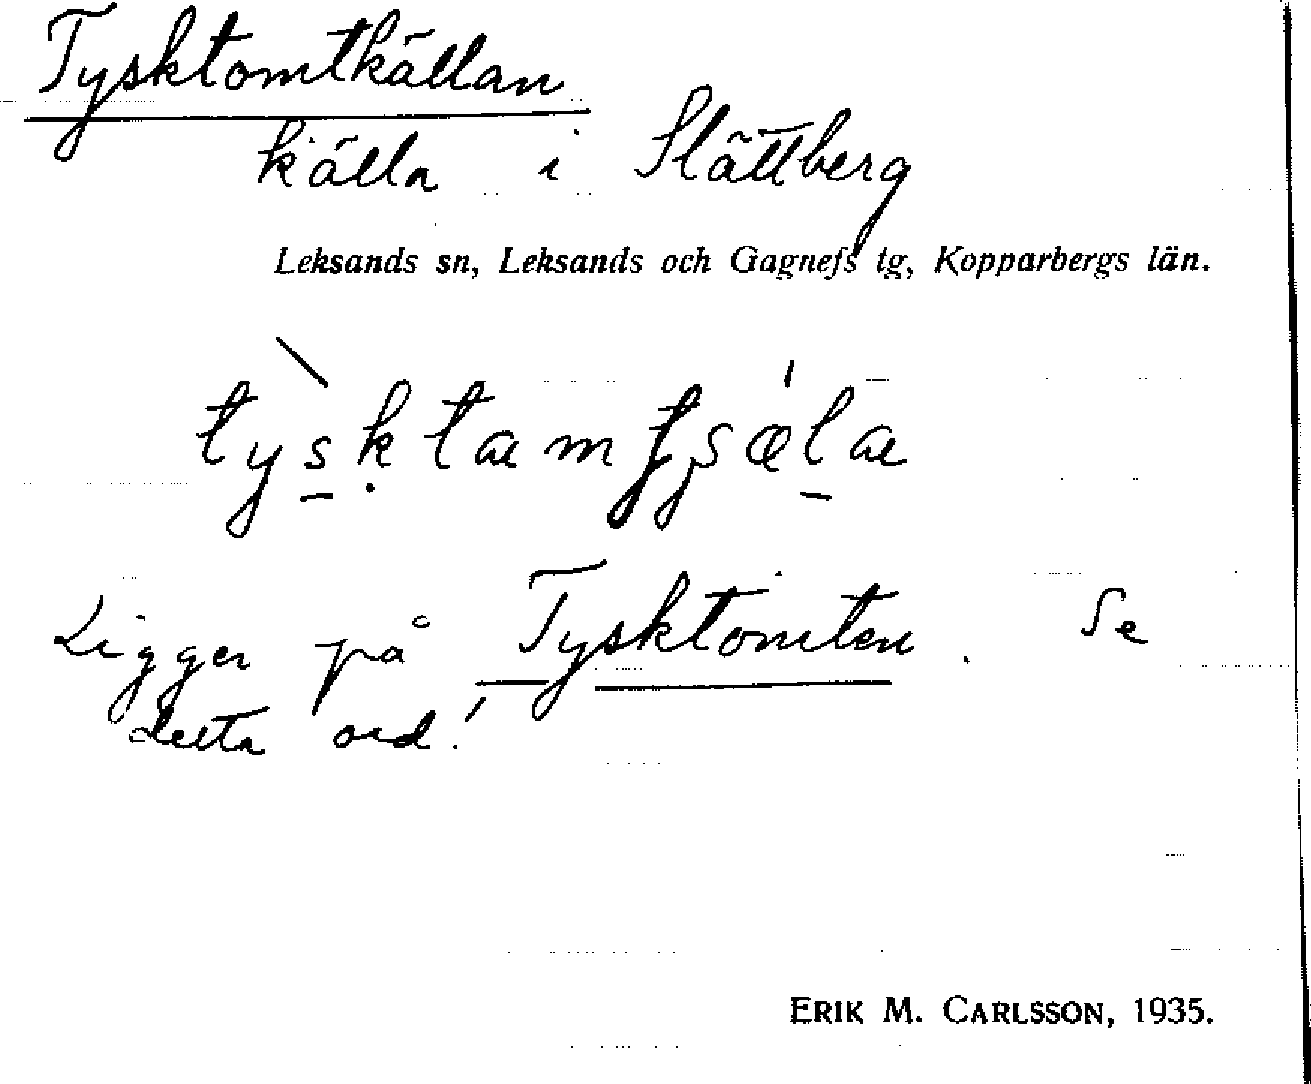 Tysktomtkällan
källa i Slättberg
Leksands sn, Leksands och Gagnefs tg, Kopparbergs län.
Ligger på Tysktomten. Se
detta ord!
ERIK M. CARLSSON, 1935.